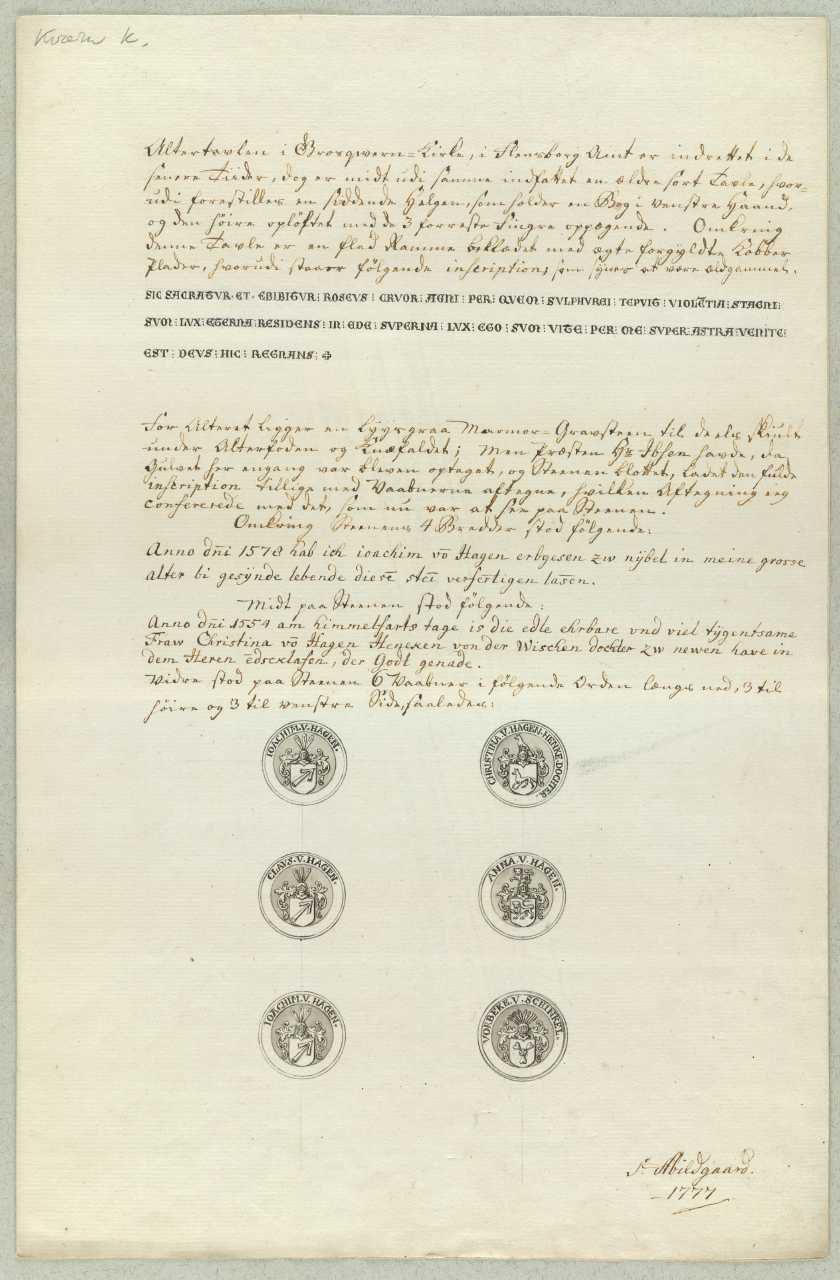 Kværn K.
Altertavlen i Broeqwern=Kirke, i Flensborg Amt er indrettet i de
senere Tiider, dog er midt udi samme indfattet en ældre sort Tavle, hvor=
udi forestilles en siddende Helgen, som holder en Bog i venstre Haand,
og den høire opløftet med de 3 forreste Fingre oppegende. Omkring
denne Tavle er en flad Ramme beklædet med ægte forgyldte Kobber
Plader, hvorudi staaer følgende inscription, som synes at være ældgammel.
SIC SACRATVR ET EBIBITVR ROSEVS CRVOR AGNI PER QVEM SVLPHVREI TEPVIT VIOLETIA STAGNI
SVM LVX ETERNA RESIDENS IN EDE SVPERNA LVX EGO SVM VITE PER ME SVPER ASTRA VENITE
EST DEVS HIC REGNANS ✠
For Alteret ligger en Lyysgraa Marmor=Gravsteen til deels skiult
under Alterfoden og Knæfaldet; Men Præsten Hr Ibsen havde, da
Gulvet her engang var bleven optaget, og Steenen blottet, ladet den fulde
inscription tillige med Vaabnerne aftegne, hvilken Aftegning jeg
confererede med det, som nu var at see paa Steenen.
Omkring Steenens 4 Bredder stod følgende:
Anno dn̄i 1578 hab ich ioachim vō Hagen erbgesen zw nÿbel in meine grosse
alter bi gesÿnde lebende diesē stei verfertigen lasen.
Midt paa Steenen stod følgende:
Anno dn̄i 1554 am himmelfarts tage is die edle ehrbare vnd viel tÿgentsame
Fraw Christina vō Hagen Heneken von der Wischen dochter zw newen have in
dem Heren ēdsexlafen, der Godt genade.
Vidre stod paa Steenen 6 Vaabner i følgende Orden længs ned, 3 til
høire og 3 til venstre Side, saaledes:
IOACHIM.V.HAGEN.
CHRISTINA V. HAGEN.HENKE.DOCHTER.
CLAVS.V.HAGEN.
ANNA V. HAGEN.
IOACHIM.V.HAGEN.
VOLBEKE.V.SCHINKEL.
S. Abildgaard.
1777